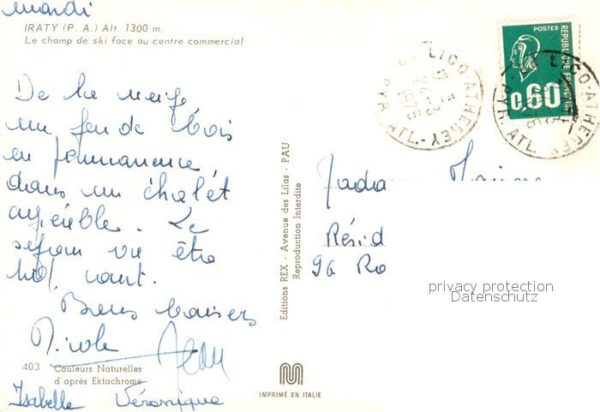 mardi
IRATY (P. A.) Alt. 1300 m.
Le champ de ski face au centre commercial
De la neige
un feu de bois
en permanence
dans un châlet
agréable. Le
séjour va être
Bons baisers
Nicole Jean
Isabelle Véronique
403 Couleurs Naturelles
d'après Ektachrome
Editions REX - Avenue des Lilas - PAU
Reproduction Interdite
IMPRIMÉ EN ITALIE
LICQ-ATHEREY
PYR. ATL.
POSTES
REPUBLIQUE FRANCAISE
0,60
LICQ-ATHEREY
PYR. ATL.
Résid
96 Ro
privacy protection
Datenschutz